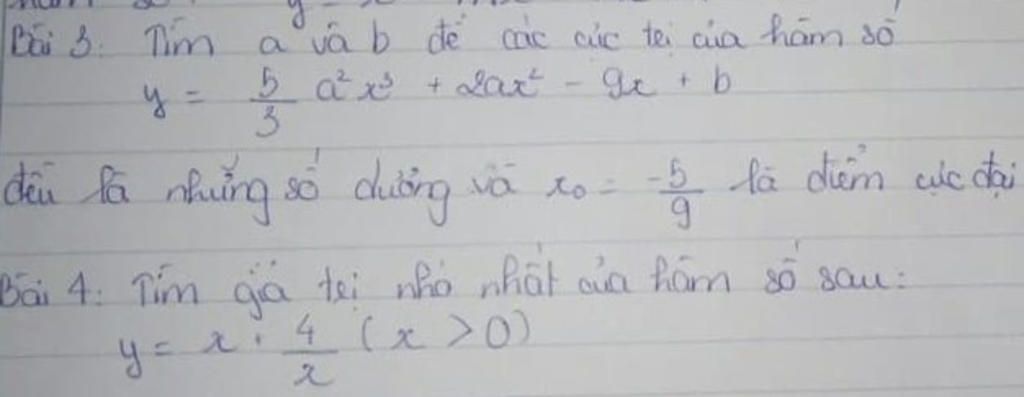 Bài 3: Tìm a và b để các cực trị của hàm số
y = 5/3 a²x³ + 2ax² - 9x + b
đều là những số dương và x₀ = -5/9 là điểm cực đại
Bài 4: Tìm giá trị nhỏ nhất của hàm số sau:
y = x · 4/x (x > 0)